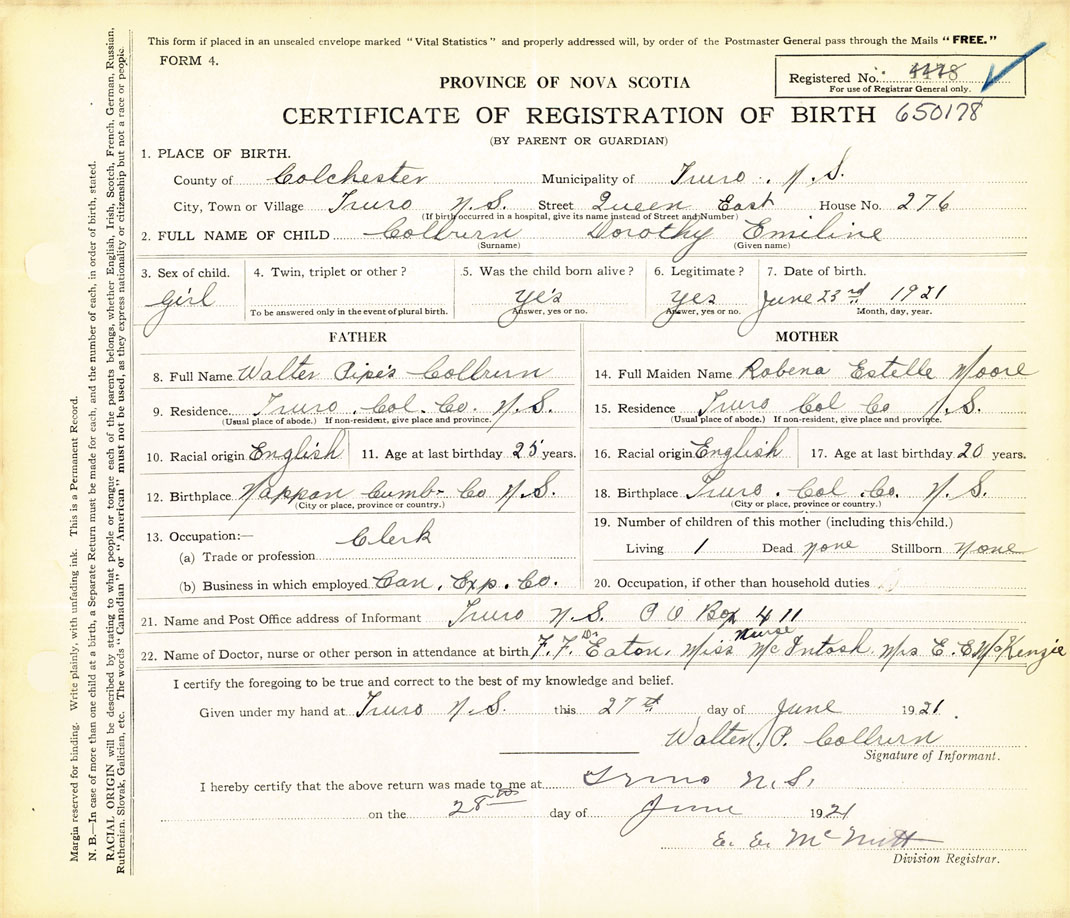 This form if placed in an unsealed envelope marked "Vital Statistics" and properly addressed will, by order of the Postmaster General pass through the Mails "FREE."
FORM 4.
Registered No. 4478
For use of Registrar General only.
PROVINCE OF NOVA SCOTIA
CERTIFICATE OF REGISTRATION OF BIRTH 650178
(BY PARENT OR GUARDIAN)
1. PLACE OF BIRTH.
County of Colchester Municipality of Truro. N.S.
City, Town or Village Truro N.S. Street Queen East House No. 276
(If birth occurred in a hospital, give its name instead of Street and Number)
2. FULL NAME OF CHILD Colburn Dorothy Emiline
(Surname) (Given name)
3. Sex of child. 4. Twin, triplet or other? 5. Was the child born alive? 6. Legitimate? 7. Date of birth.
Girl yes yes June 23rd 1921
To be answered only in the event of plural birth. Answer, yes or no. Answer, yes or no. Month, day, year.
FATHER MOTHER
8. Full Name Walter Pipes Colburn 14. Full Maiden Name Robena Estelle Moore
9. Residence Truro. Col. Co. N.S. 15. Residence Truro Col Co N.S.
(Usual place of abode.) If non-resident, give place and province. (Usual place of abode.) If non-resident, give place and province.
10. Racial origin English 11. Age at last birthday 25 years. 16. Racial origin English 17. Age at last birthday 20 years.
12. Birthplace Nappan Cumb- Co N.S. 18. Birthplace Truro. Col. Co. N.S.
(City or place, province or country.) (City or place, province or country.)
13. Occupation:— Clerk 19. Number of children of this mother (including this child.)
(a) Trade or profession Living 1 Dead none Stillborn none
(b) Business in which employed Can. Exp. Co. 20. Occupation, if other than household duties
21. Name and Post Office address of Informant Truro N.S. P O Box 411
22. Name of Doctor, nurse or other person in attendance at birth F. F. Dr Eaton, Miss Nurse McIntosh. Mrs E. E. McKenzie
I certify the foregoing to be true and correct to the best of my knowledge and belief.
Given under my hand at Truro N.S. this 27th day of June 1921.
Walter. P. Colburn
Signature of Informant.
I hereby certify that the above return was made to me at Truro N.S.
on the 28th day of June 1921
E. E. McNutt
Division Registrar.
Margin reserved for binding. Write plainly, with unfading ink. This is a Permanent Record.
N. B.—In case of more than one child at a birth, a Separate Return must be made for each, and the number of each, in order of birth, stated.
RACIAL ORIGIN will be described by stating to what people or tongue each of the parents belongs, whether English, Irish, Scotch, French, German, Russian,
Ruthenian, Slovak, Galician, etc. The words "Canadian" or "American" must not be used, as they express nationality or citizenship but not a race or people.